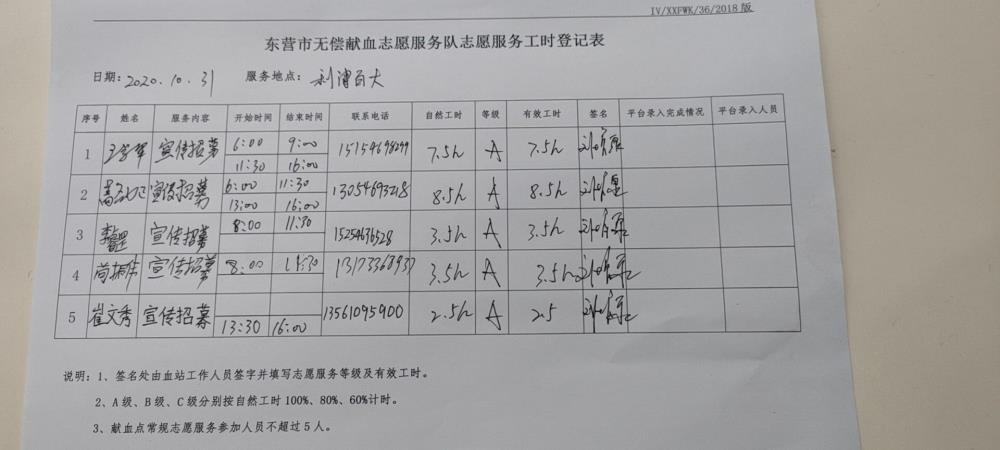 IV/XXFWK/36/2018 版
东营市无偿献血志愿服务队志愿服务工时登记表
日期：2020.10.31 服务地点：利津百大
序号 姓名 服务内容 开始时间 结束时间 联系电话 自然工时 等级 有效工时 签名 平台录入完成情况 平台录入人员
1 宣传招募 6:00 9:00 7.5h A 7.5h
11:30 16:00
2 宣传招募 6:00 11:30 13054693218 8.5h A 8.5h
13:00 16:00
3 宣传招募 8:00 11:30 3.5h A 3.5h
4 尚振伟 宣传招募 8:00 11:30 13173368937 3.5h A 3.5h
5 崔文秀 宣传招募 13561095900 2.5h A 2.5
13:30 16:00
说明：1、签名处由血站工作人员签字并填写志愿服务等级及有效工时。
2、A 级、B 级、C 级分别按自然工时 100%、80%、60%计时。
3、献血点常规志愿服务参加人员不超过 5 人。